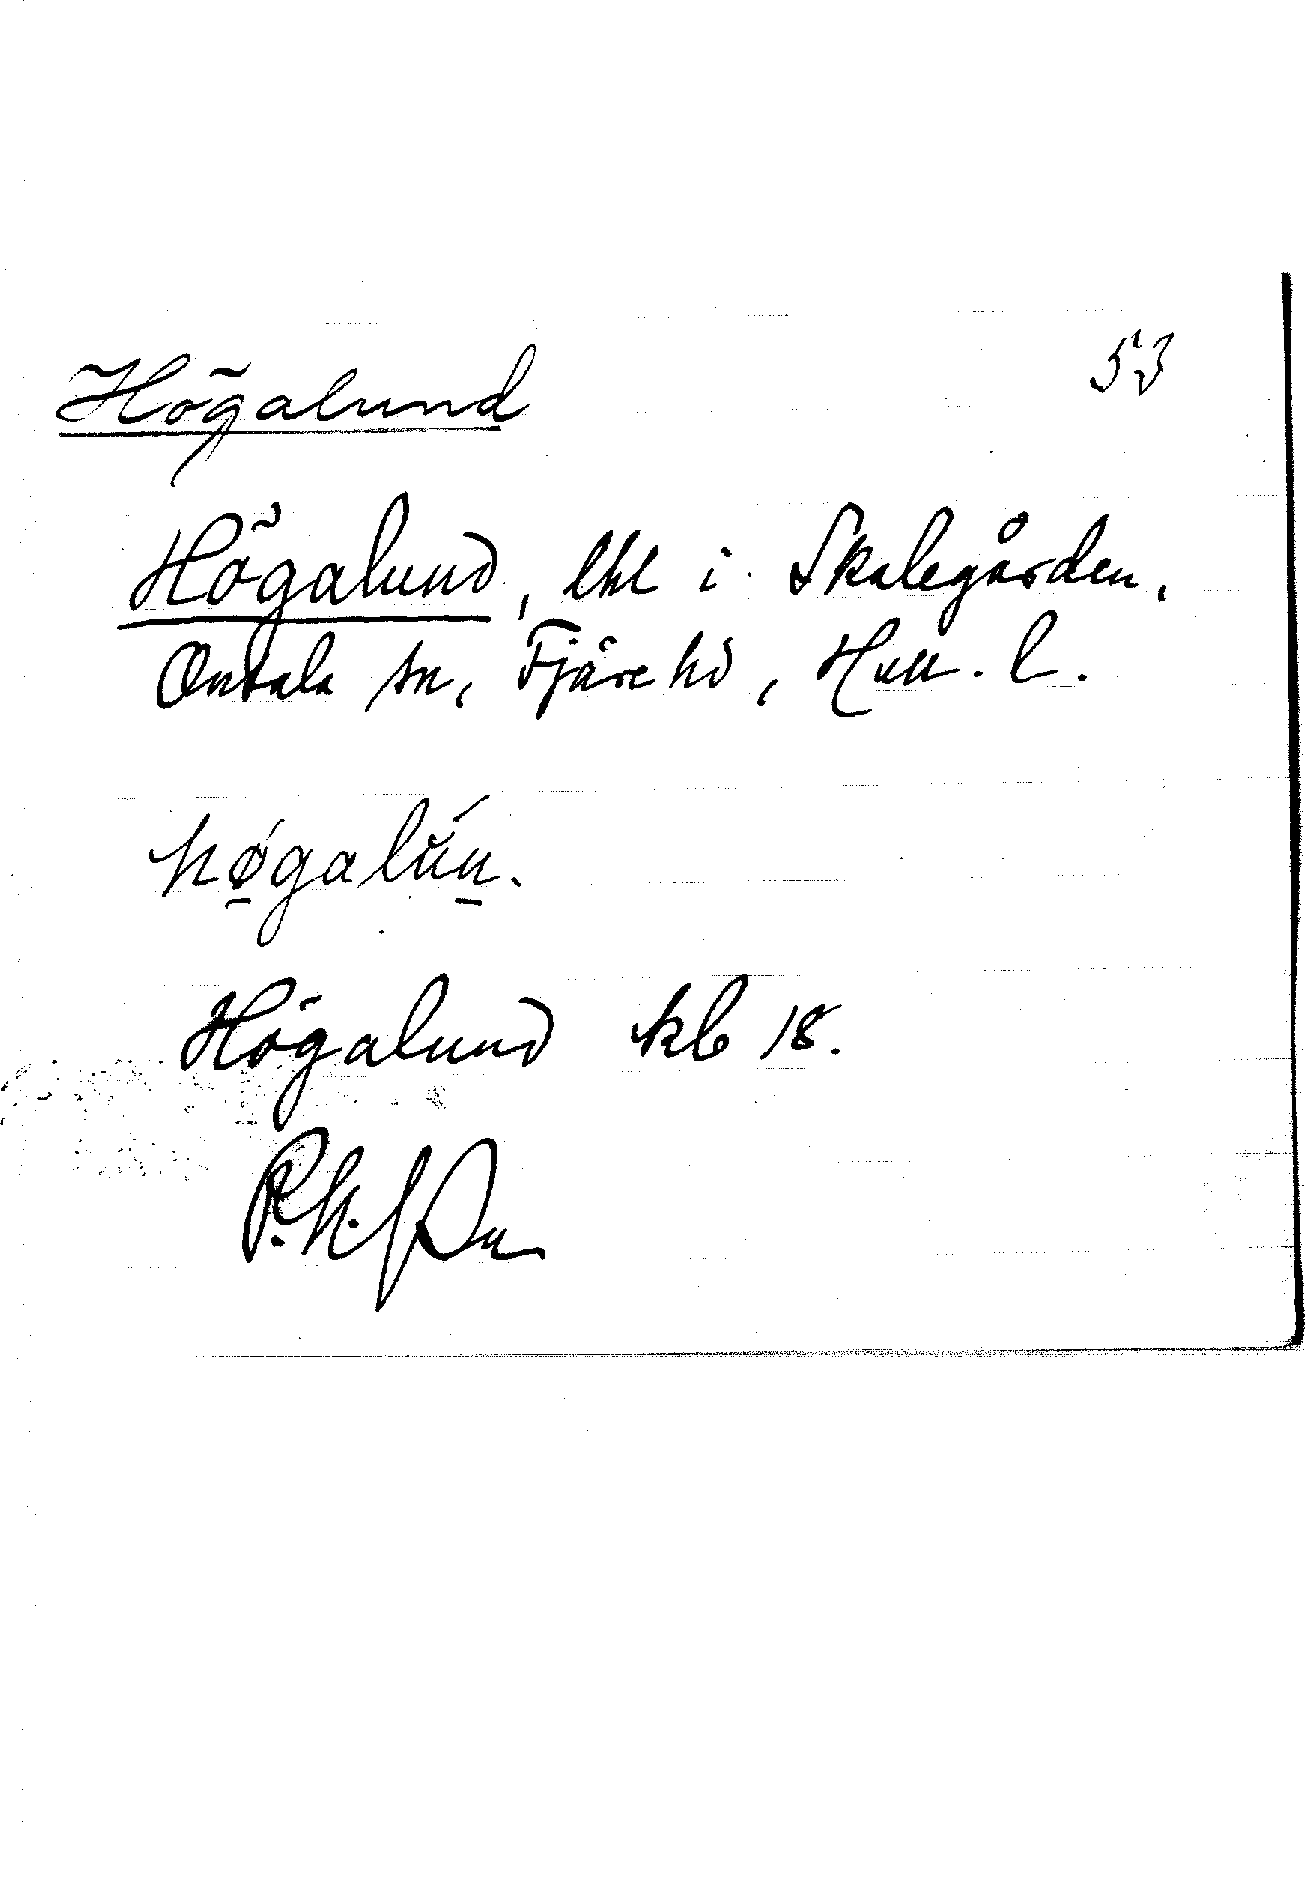 Högalund 53
Högalund, lhl i Skalegården,
Onsala sn, Fjäre hd, Hall. l.
høgalún.
Högalund kb 18.